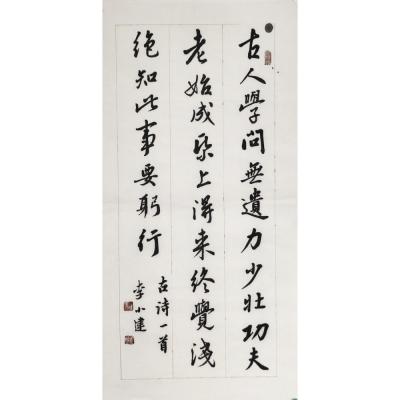 古人學問無遺力少壮功夫
老始成帋上得来终覺淺
绝知此事要躬行
古诗一首
李小建